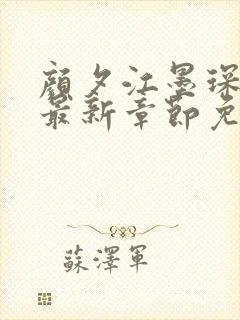 顔夕江墨琛
最新章節免
蘇澤軍